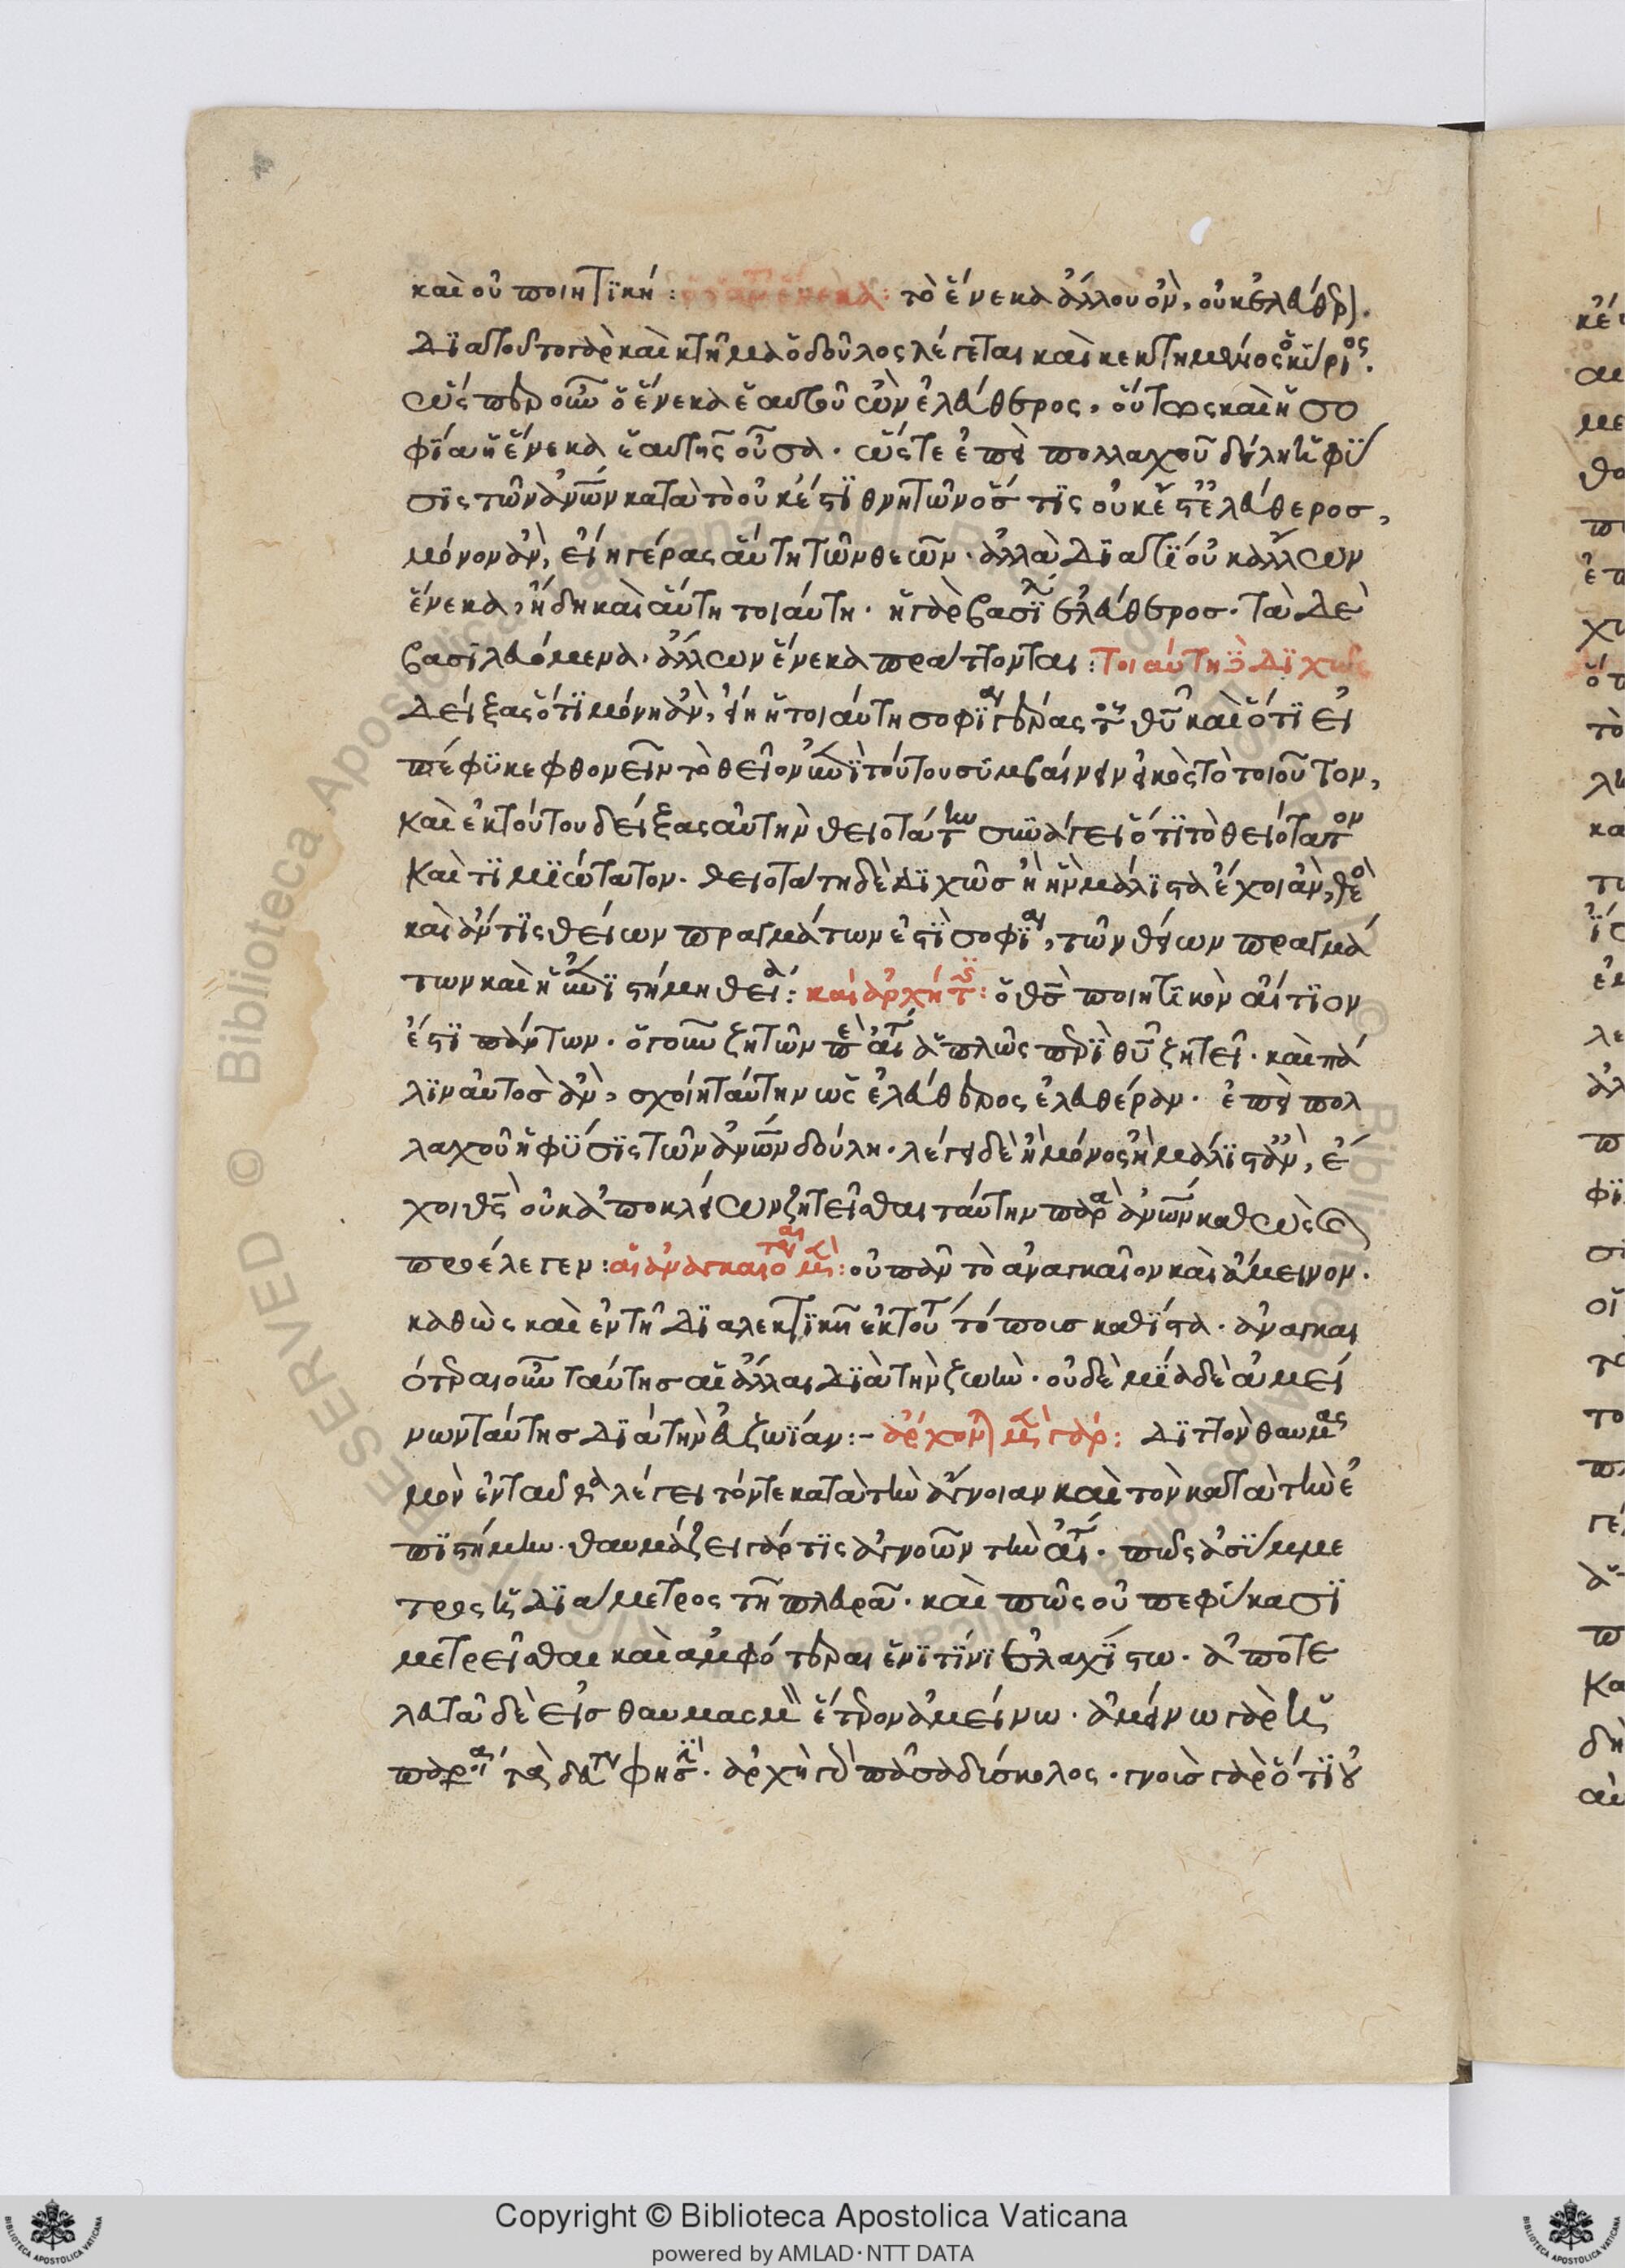 καὶ οὐ ποιητϊκή: ὁ αὑτοῦ ἕνεκα: τὸ ἕνεκα ἄλλου ὂν, οὐκ ἐλεύθερον.
Δϊὰ τοῦτο γὰρ καὶ κτῆμα ὁ δοῦλος λέγεται καὶ κεκτημένος ὁ κύριος.
ὥσπερ οὖν ὁ ἕνεκα ἑαυτοῦ ὢν ἐλεύθερος, οὕτως καὶ ἡ σο
φΐα ἡ ἕνεκα ἑαυτῆς οὖσα. ὥστε ἐπεὶ πολλαχοῦ δείλη ἡ φύ
σις τῶν ἀνων κατὰ τὸ οὐκ ἔστϊ θνητῶν ὅσ τϊς οὐκ ἔστ ἐλεύθεροσ,
μόνον ἂν, εἴη γέρας αὕτη τῶν θεῶν. ἀλλὰ Δϊατΐ οὐκ ἄλλων
ἕνεκα, ἤδη καὶ αὕτη τοιαύτη. ἡ γὰρ βασιλ ἐλεύθεροσ. τὰ Δὲ
βασϊλευόμενα. ἄλλων ἕνεκα πράττονται: Τοιαύτη δ Δϊχῶς
Δείξας ὅτϊ μόνη ἂν, εἴη ἡ τοιαύτη σοφϊαν γέρας τοῦ θυ καὶ ὅτϊ εἰ
πέφϋκε φθονεῖν τὸ θεῖον ἐπὶ τούτου συμβαίνειν εἰκὸς τὸ τοιοῦτον,
καὶ ἐκ τούτου δείξας αὐτὴν θειοτάτην συνάγει ὅτϊ τὸ θειότατον
Καὶ τϊμϊώτατον. θειοτάτη δὲ Δϊχῶσ ἢ ἣν μάλϊστα ἔχοι ἂν, θεὸ
καὶ ἄν τϊς θείων πραγμάτων ἐστϊ σοφϊαν, τῶν θείων πραγμά
των καὶ ἡ ἐπϊστήμη θεία: καὶ ἀρχή τις: ὁ θς ποιητϊκὸν αἴτϊον
ἐστϊ πάντων. ὁ γοῦν ζητῶν περὶ αἰτ ἁπλῶς περὶ θυ ζητεῖ. καὶ πά
λϊν αὐτὸσ ἂν, σχοίη ταύτην ὡς ἐλεύθερος ἐλευθέραν. ἐπεὶ πολ
λαχοῦ ἡ φϋσϊς τῶν ἀνων δούλη. λέγει δὲ ἢ μόνος ἢ μάλϊστ ἂν, ἔ
χοι θς οὐκ ἀποκλείων ζητεῖσθαι ταύτην παρὰ ἀνων καθὼς
προέλεγεν: αἱ ἀναγκαιότεραι μὲν: οὐ πᾶν τὸ ἀναγκαῖον καὶ ἄμεινον.
καθὼς καὶ ἐν τῇ Δϊαλεκτϊκῇ ἐκ τοῦ τόποισ καθϊστα. ἀναγκαι
ότεραι οὖν ταύτησ αἱ ἄλλαι Δϊὰ τὴν ζωὴν. οὐδὲ μΐα δὲ ἀμεί
νων ταύτησ Δϊὰ τὴν εὐζωΐαν:- ἄρχονται μὲν γὰρ: Δϊττὸν θαυμας
μὸν ἐνταῦθα λέγει τόν τε κατὰ τὴν ἄγνοιαν καὶ τὸν κατὰ τὴν ἐ
πϊστήμην. θαυμάζει γάρ τϊς ἀγνοῶν τὴν αἰτ. πῶς ἀσύμμε
τρος ἡ Δϊάμετρος τῇ πλευρᾷ. καὶ πῶς οὐ πεφύκασϊ
μετρεῖσθαι καὶ ἀμφότεραι ἑνϊ τϊνϊ ἐλαχϊστω. ἀποτε
λευτᾷ δὲ εἰσ θαυμασμ ἕτερον ἀμείνω. ἀμείνω γὰρ ἡ
παρ τὰ δευτ φησ. ἀρχὴ γὰρ πᾶσα δύσκολος. γνοὺσ γὰρ ὅτϊ οὐ